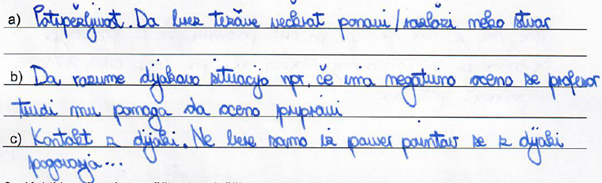 a) Potrpežljivost. Da brez težave večkrat ponovi / razloži neko stvar
b) Da razume dijakovo situacijo npr. če ima negativno oceno se profesor
trudi mu pomaga da oceno popravi
c) Kontakt z dijaki. Ne bere samo iz power pointov se z dijaki
pogovarja...